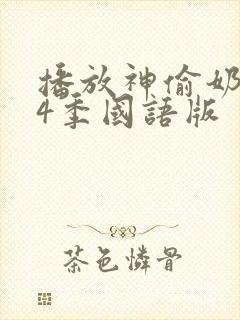 播放神偷奶
4季國語版
茶色憐骨